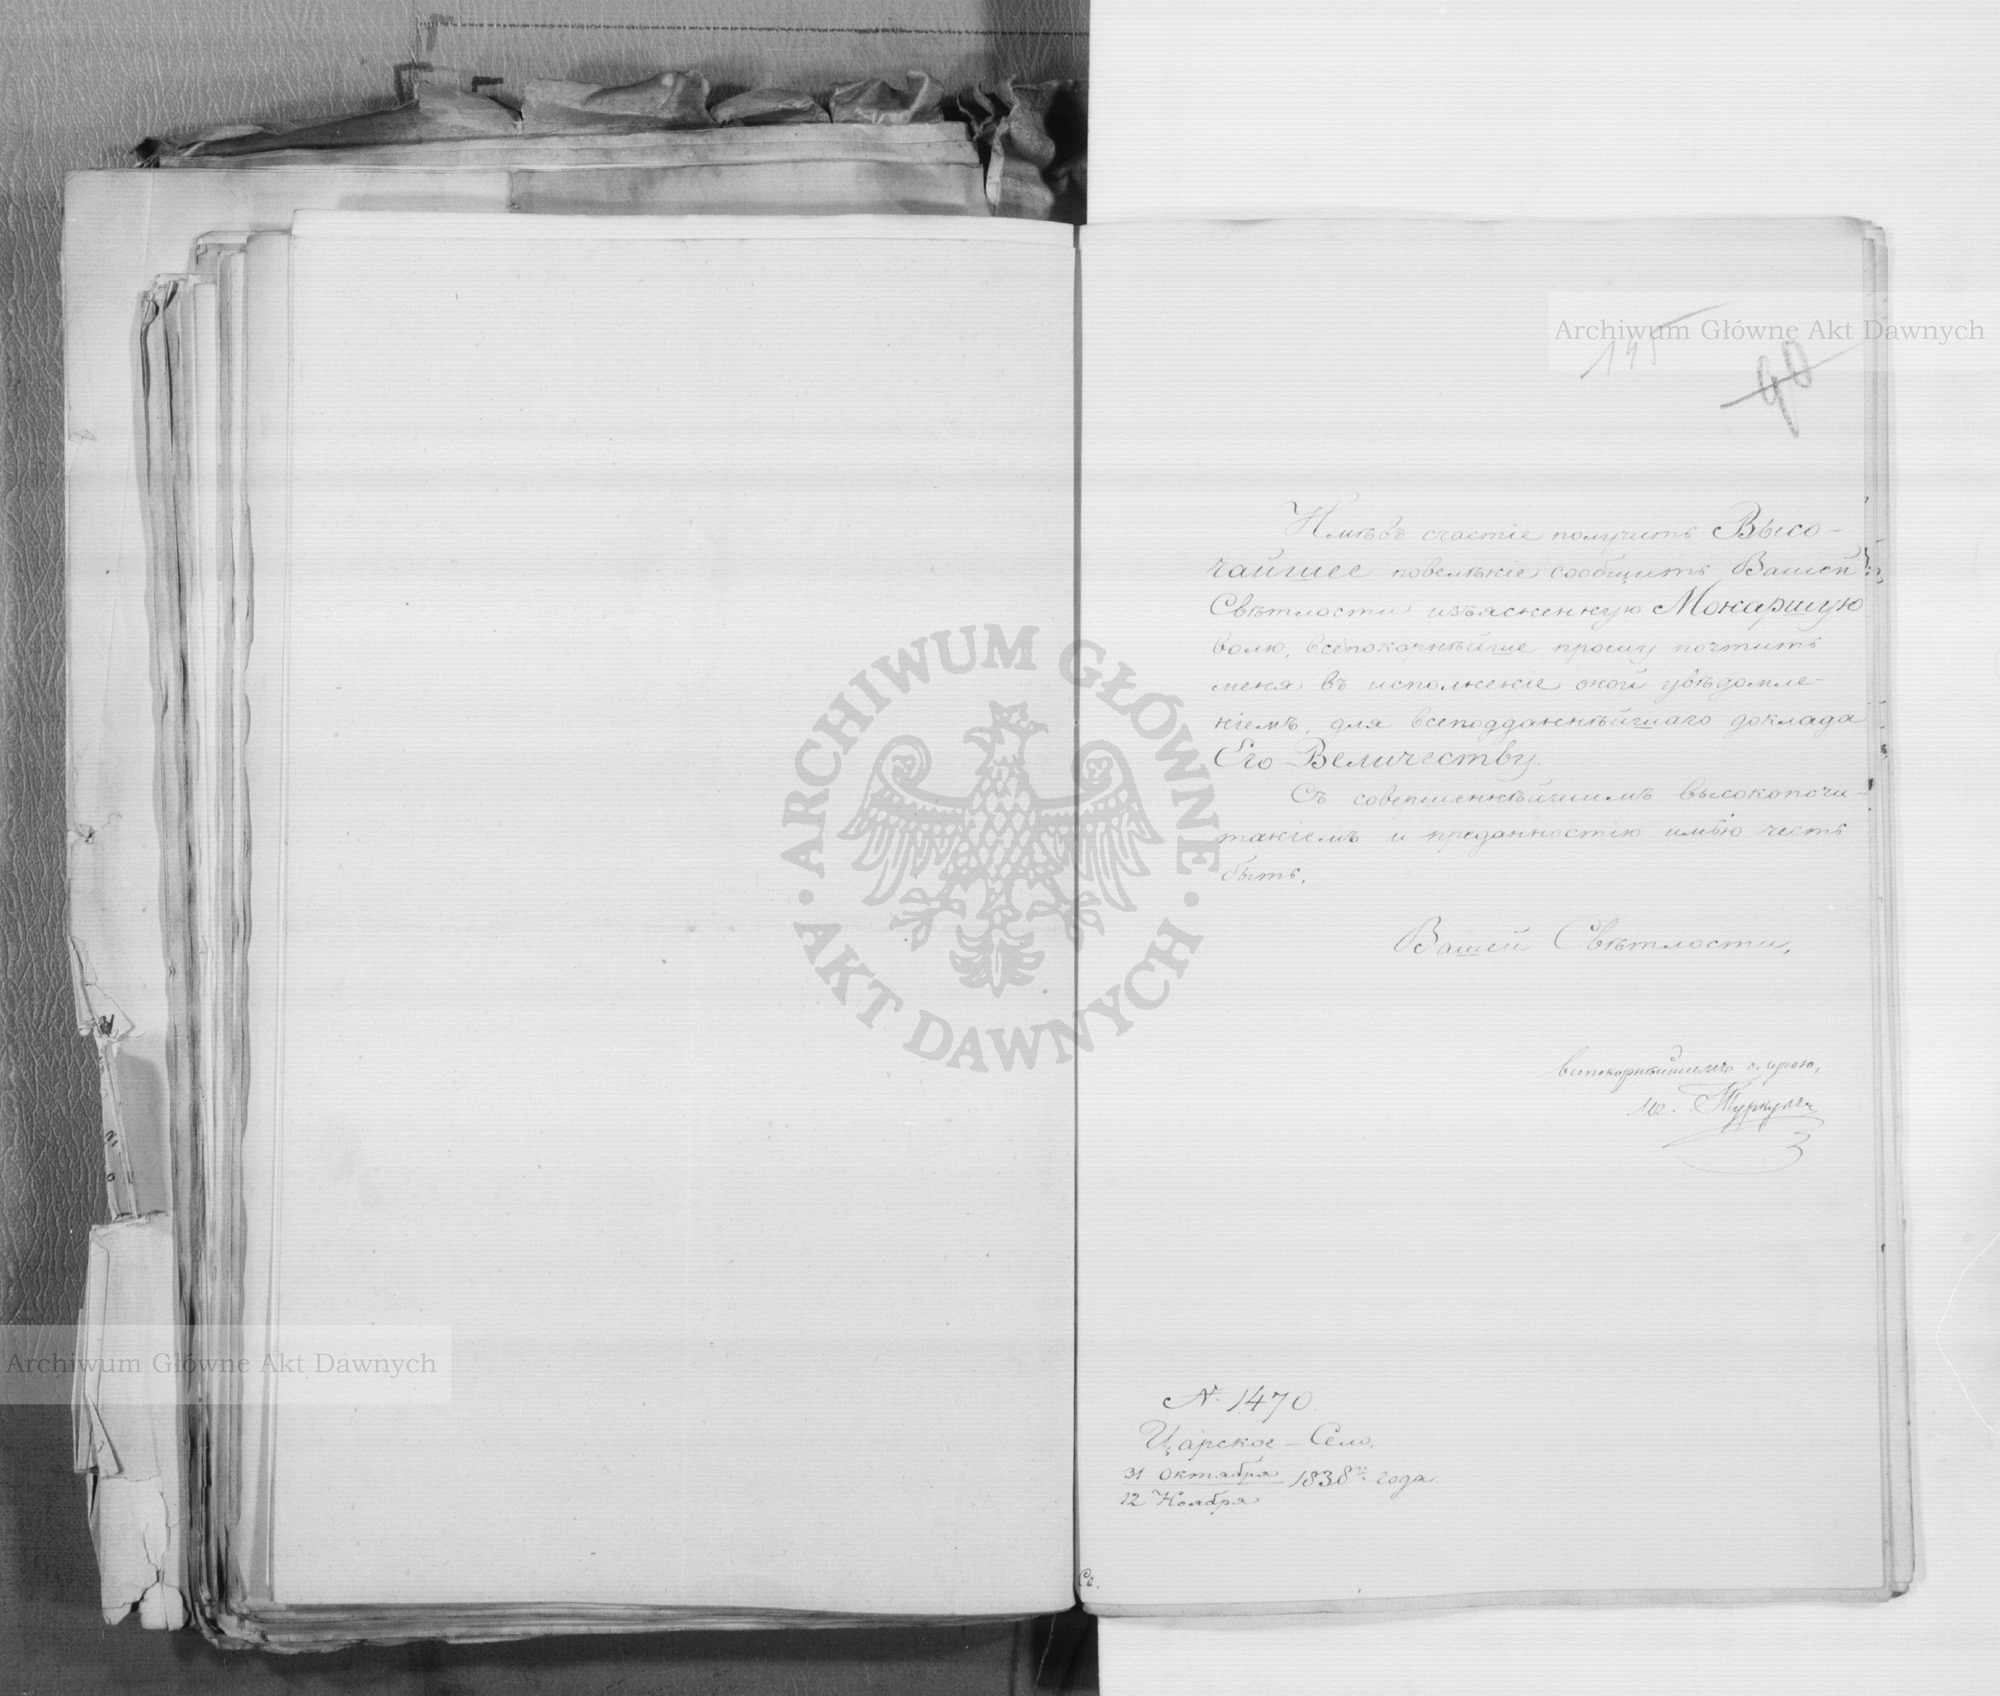 Archiwum Główne Akt Dawnych
145
90
Имѣвъ счастіе получить Высо-
чайшее повелѣніе сообщить Вашей
Свѣтлости изъясненную Монаршую
волю, всепокорнѣйше прошу почтить
меня въ исполненіе оной увѣдомле-
ніемъ, для всеподданнѣйшаго доклада
Его Величеству.
Съ совершеннѣйшимъ высокопочи-
таніемъ и преданностію имѣю честь
быть,
Вашей Свѣтлости,
всепокорнѣйшимъ слугою,
Иг. Туркулъ
№ 1470.
Царское-Село,
31 Октября
12 Ноября
1838го года.
Св.
ARCHIWUM GŁÓWNE
AKT DAWNYCH
Archiwum Główne Akt Dawnych